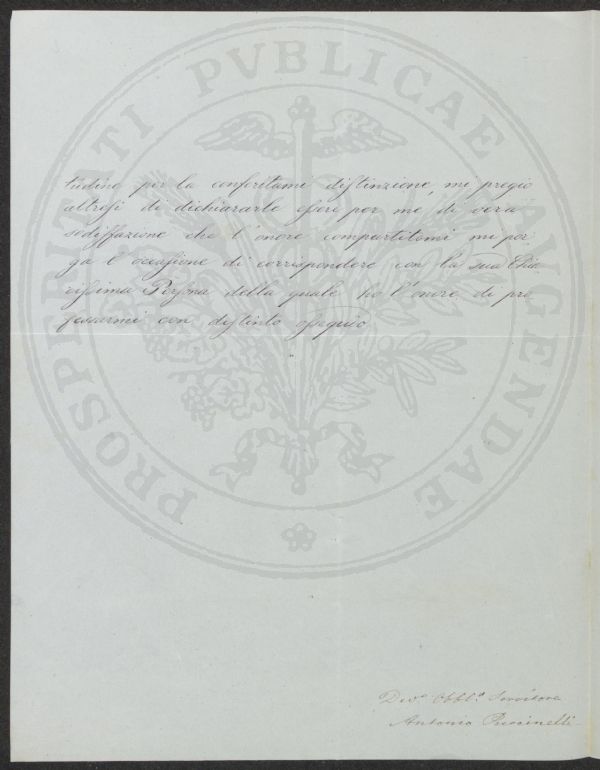 PROSPERITATI PVBLICAE AVGENDAE
tudine per la conferitami distinzione, mi pregio
altresì di dichiararle essere per me di vera
sodisfazione che l'onore compartitomi mi por
ga l'occasione di corrispondere con la sua Chia
rissima Persona della quale ho l'onore di pro
fessarmi con distinto ossequio
Div.º Obbl.º Servitore
Antonio Piccinelli